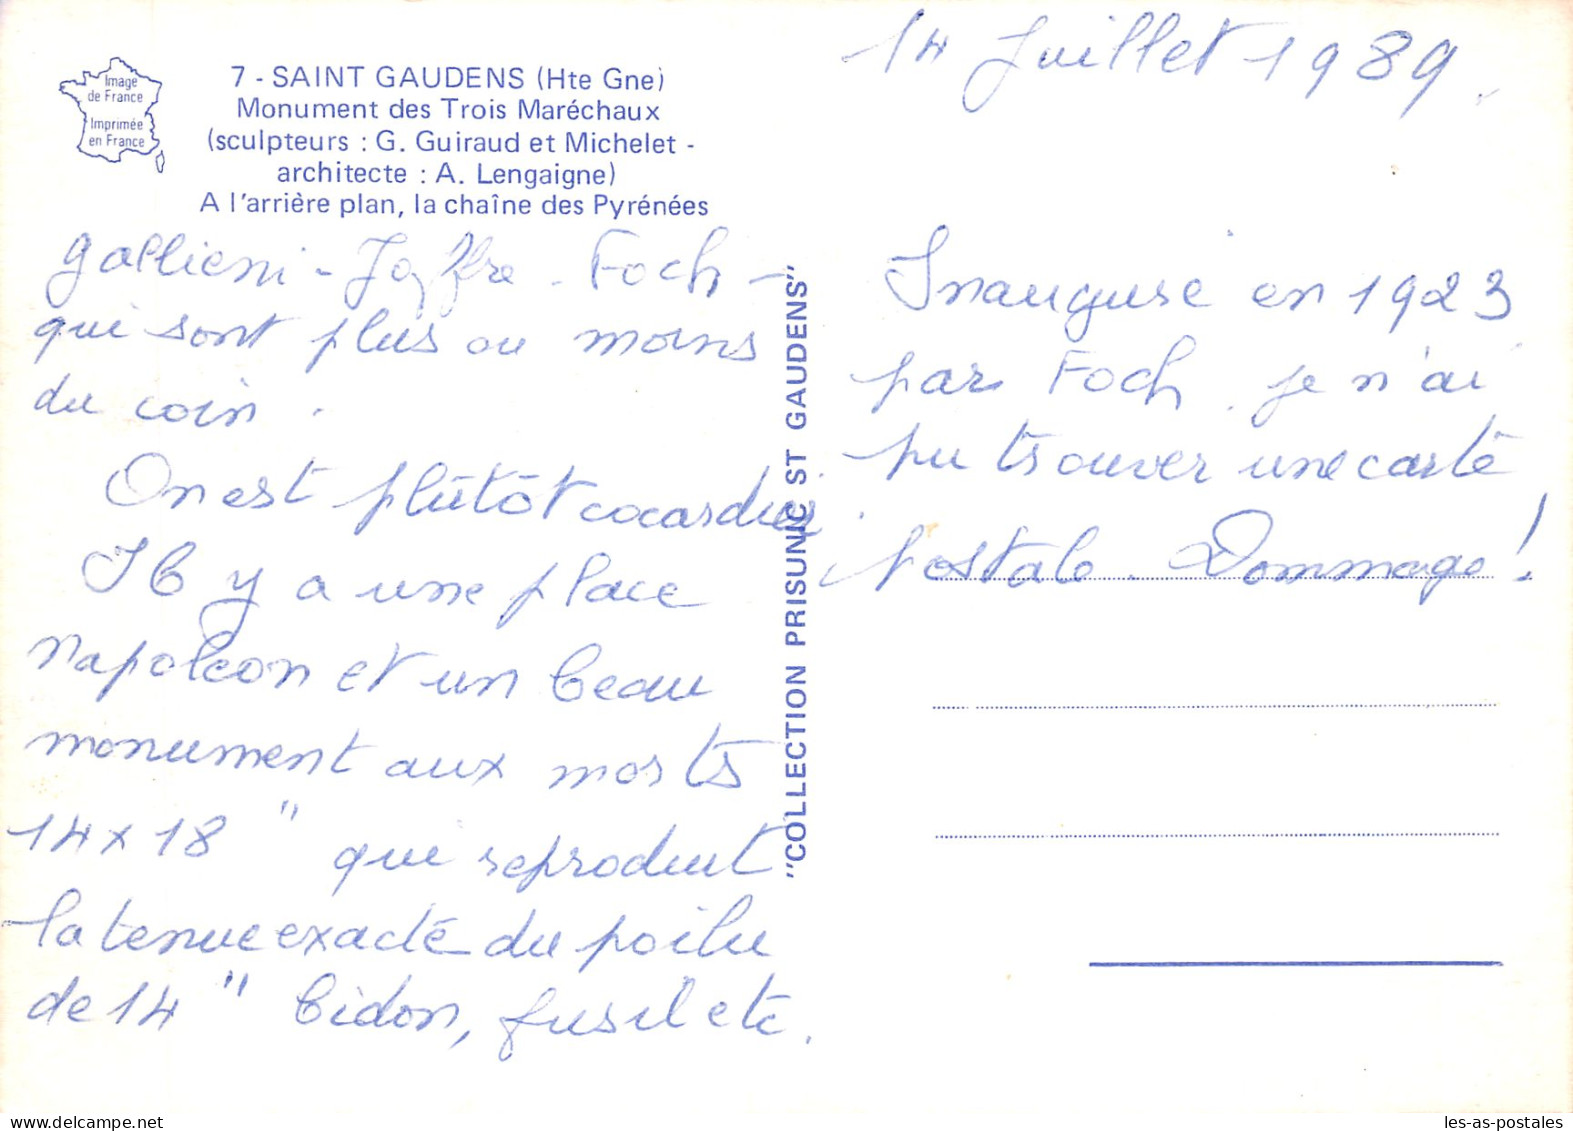 Image
de France
Imprimée
en France
7 - SAINT GAUDENS (Hte Gne)
Monument des Trois Maréchaux
(sculpteurs : G. Guiraud et Michelet -
architecte : A. Lengaigne)
A l'arrière plan, la chaîne des Pyrénées
Gallieni - Joffre - Foch -
qui sont plus ou moins
du coin.
On est plutôt cocardier.
Il y a une place
Napoléon et un beau
monument aux morts
14 x 18 " qui reproduit
la tenue exacte du poilu
de 14 " bidon, fusil etc.
"COLLECTION PRISUNIC ST GAUDENS"
14 Juillet 1989.
Inauguré en 1923
par Foch. je n'ai
pu trouver une carte
postale. Dommage !
les-as-postales